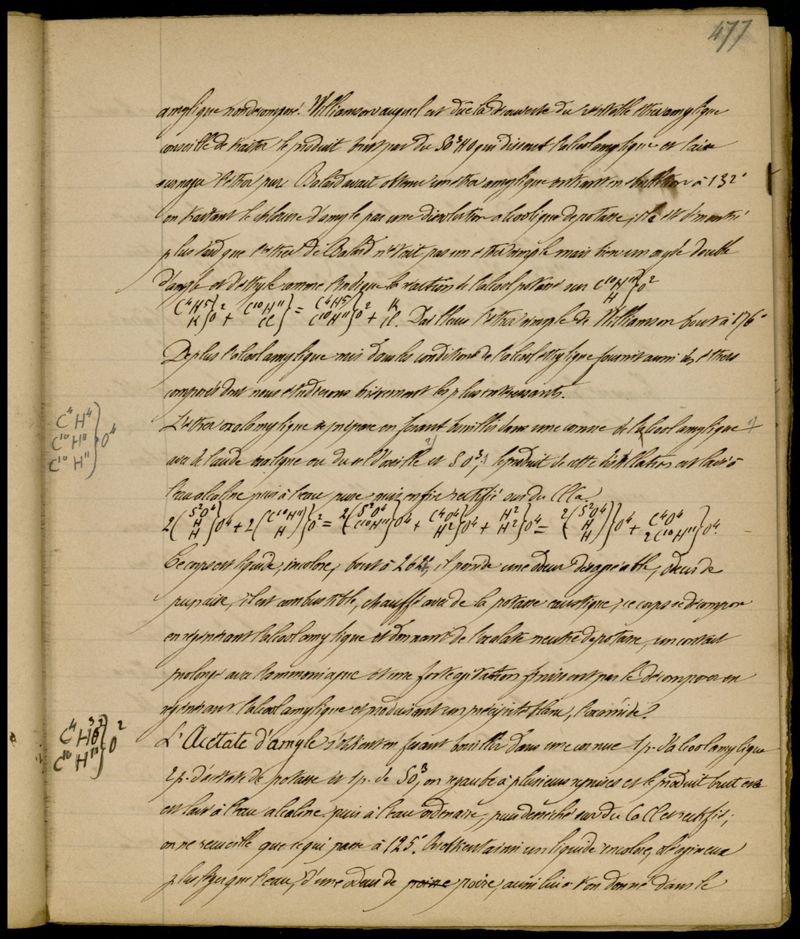 477
amylique non décomposé. Williamson auquel est due la découverte du véritable éther amylique
conseille de traiter le produit brut par du SO³HO qui dissout l'alcool amylique et laisse
surnager l'éther pur. Balard avait obtenu un éther amylique entrant en ébullition à 132°
en traitant le chlorure d'amyle par une dissolution alcoolique de potasse, il a été démontré
plus tard que l'éther de Balard n'était pas un éther simple mais bien un oxyde double
d'amyle et d'éthyle comme l'indique la réaction de l'alcool potassé sur C¹⁰H¹¹ H}O²
C⁴H⁵ K}O² + C¹⁰H¹¹ Cl} = C⁴H⁵ C¹⁰H¹¹}O² + K Cl. D'ailleurs l'éther simple de Williamson bout à 176°
De plus l'alcool amylique mis dans les conditions de l'alcool éthylique fournit aussi des éthers
composés dont nous étudierons brièvement les plus intéressants.
C⁴H⁴ C¹⁰H¹¹ C¹⁰H¹¹}O⁴
L'éther oxalamylique se prépare en faisant bouillir dans une cornue de l'alcool amylique
avec de l'acide oxalique ou du sel d'oseille et SO³; le produit de cette distillation est lavé à
l'eau alcaline puis à l'eau pure puis enfin rectifié sur du ClCa.
2(S²O⁴ H H}O⁴ + 2(C¹⁰H¹¹ H}O² = 2(S²O⁴ C¹⁰H¹¹}O⁴ + C⁴O⁴ H²}O⁴ + H² H²}O⁴ = 2(S²O⁴ H H)}O⁴ + C⁴O⁴ 2C¹⁰H¹¹}O⁴.
Ce corps est liquide, incolore, bout à 262°, il possède une odeur désagréable, odeur de
punaise, il est combustible, chauffé avec de la potasse caustique; ce corps se décompose
en régénérant l'alcool amylique et donnant de l'oxalate neutre de potasse, un contact
prolongé avec l'ammoniaque et une forte agitation finissent par le décomposer en
régénérant l'alcool amylique et produisant un précipité blanc, l'oxamide.
C⁴H³O² C¹⁰H¹¹}O²
L'Acétate d'amyle s'obtient en faisant bouillir dans une cornue 1 p. d'alcool amylique
2 p. d'acétate de potasse et 1 p. de SO³, on recohobe à plusieurs reprises et le produit brut
est lavé à l'eau alcaline puis à l'eau ordinaire, puis desséché sur du CaCl et rectifié;
on ne recueille que ce qui passe à 125°. On obtient ainsi un liquide incolore, oléagineux
plus léger que l'eau, d'une odeur de poire poire, aussi lui a-t-on donné dans le